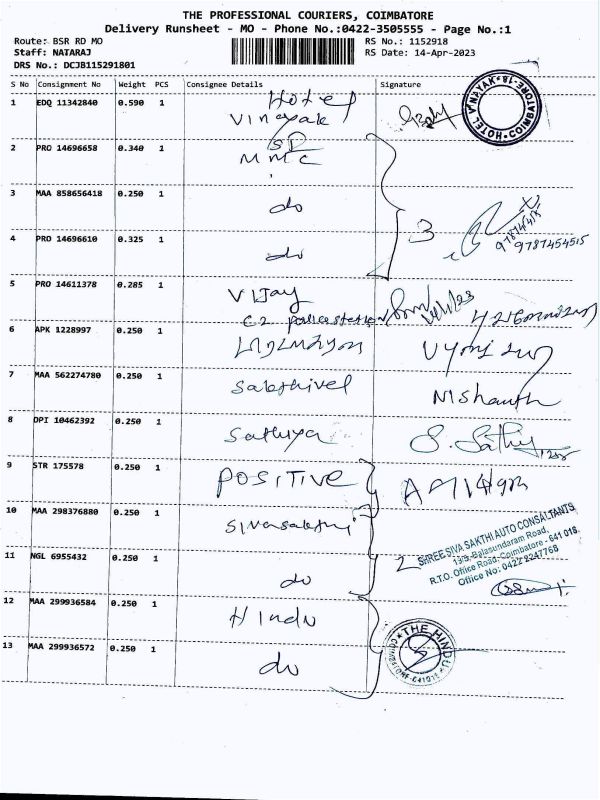 THE PROFESSIONAL COURIERS, COIMBATORE
Delivery Runsheet - MO - Phone No.:0422-3505555 - Page No.:1
Route: BSR RD MO RS No.: 1152918
Staff: NATARAJ RS Date: 14-Apr-2023
DRS No.: DCJB115291801
S No Consignment No Weight PCS Consignee Details Signature
1 EDQ 11342840 0.590 1 Hotel
Vinayak
HOTEL VINAYAK COIMBATORE-18
2 PRO 14696658 0.340 1 SP
MMC
3 MAA 858656418 0.250 1 do
3
4 PRO 14696610 0.325 1 do
9787454515
9787454515
5 PRO 14611378 0.285 1 Vijay
C2 police station
6 APK 1228997 0.250 1
7 MAA 562274780 0.250 1 Sakthivel Nishanth
8 DPI 10462392 0.250 1 Sathiya S. Sathiya
9 STR 175578 0.250 1 POSITIVE
10 MAA 298376880 0.250 1 Sivasakthi
2
SHREE SIVA SAKTHI AUTO CONSALTANTS
13/3, Balasundaram Road,
R.T.O. Office Road, Coimbatore - 641 018.
Office No: 0422 2247768
11 NGL 6955432 0.250 1 do
12 MAA 299936584 0.250 1 Hindu
THE HINDU
13 MAA 299936572 0.250 1 do